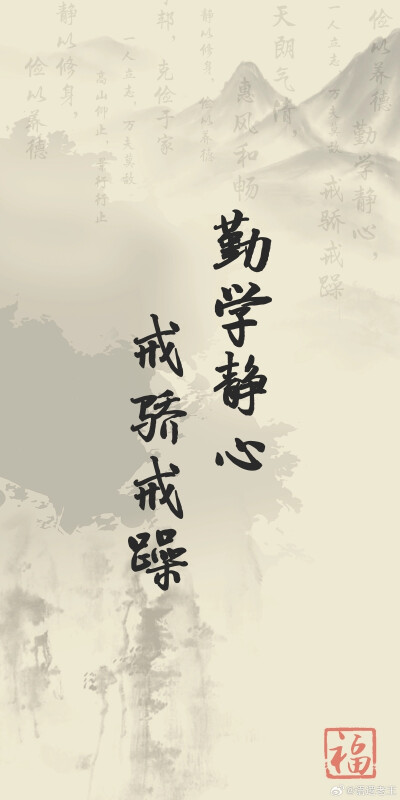 勤学静心
戒骄戒躁
俭以养德
勤学静心，
一人立志，万夫莫敌
戒骄戒躁
天朗气清，
惠风和畅
静以修身，俭以养德
于邦，克俭于家
一人立志，万夫莫敌
高山仰止，景行行止
静以修身，
俭以养德
福